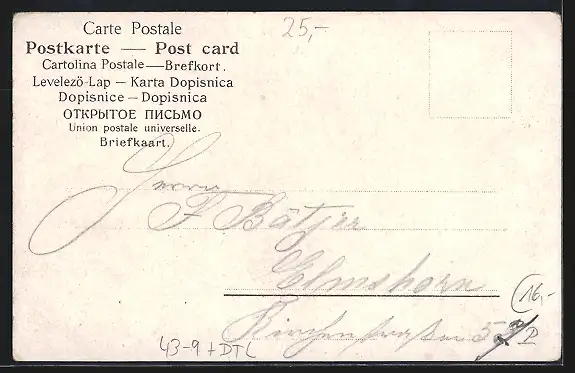 Carte Postale
Postkarte — Post card
Cartolina Postale—Brefkort.
Levelező-Lap — Karta Dopisnica
Dopisnice – Dopisnica
ОТКРЫТОЕ ПИСЬМО
Union postale universelle.
Briefkaart.
25,-
Herrn
F Bätjer
Elmshorn
16,-
43-9 + DTL